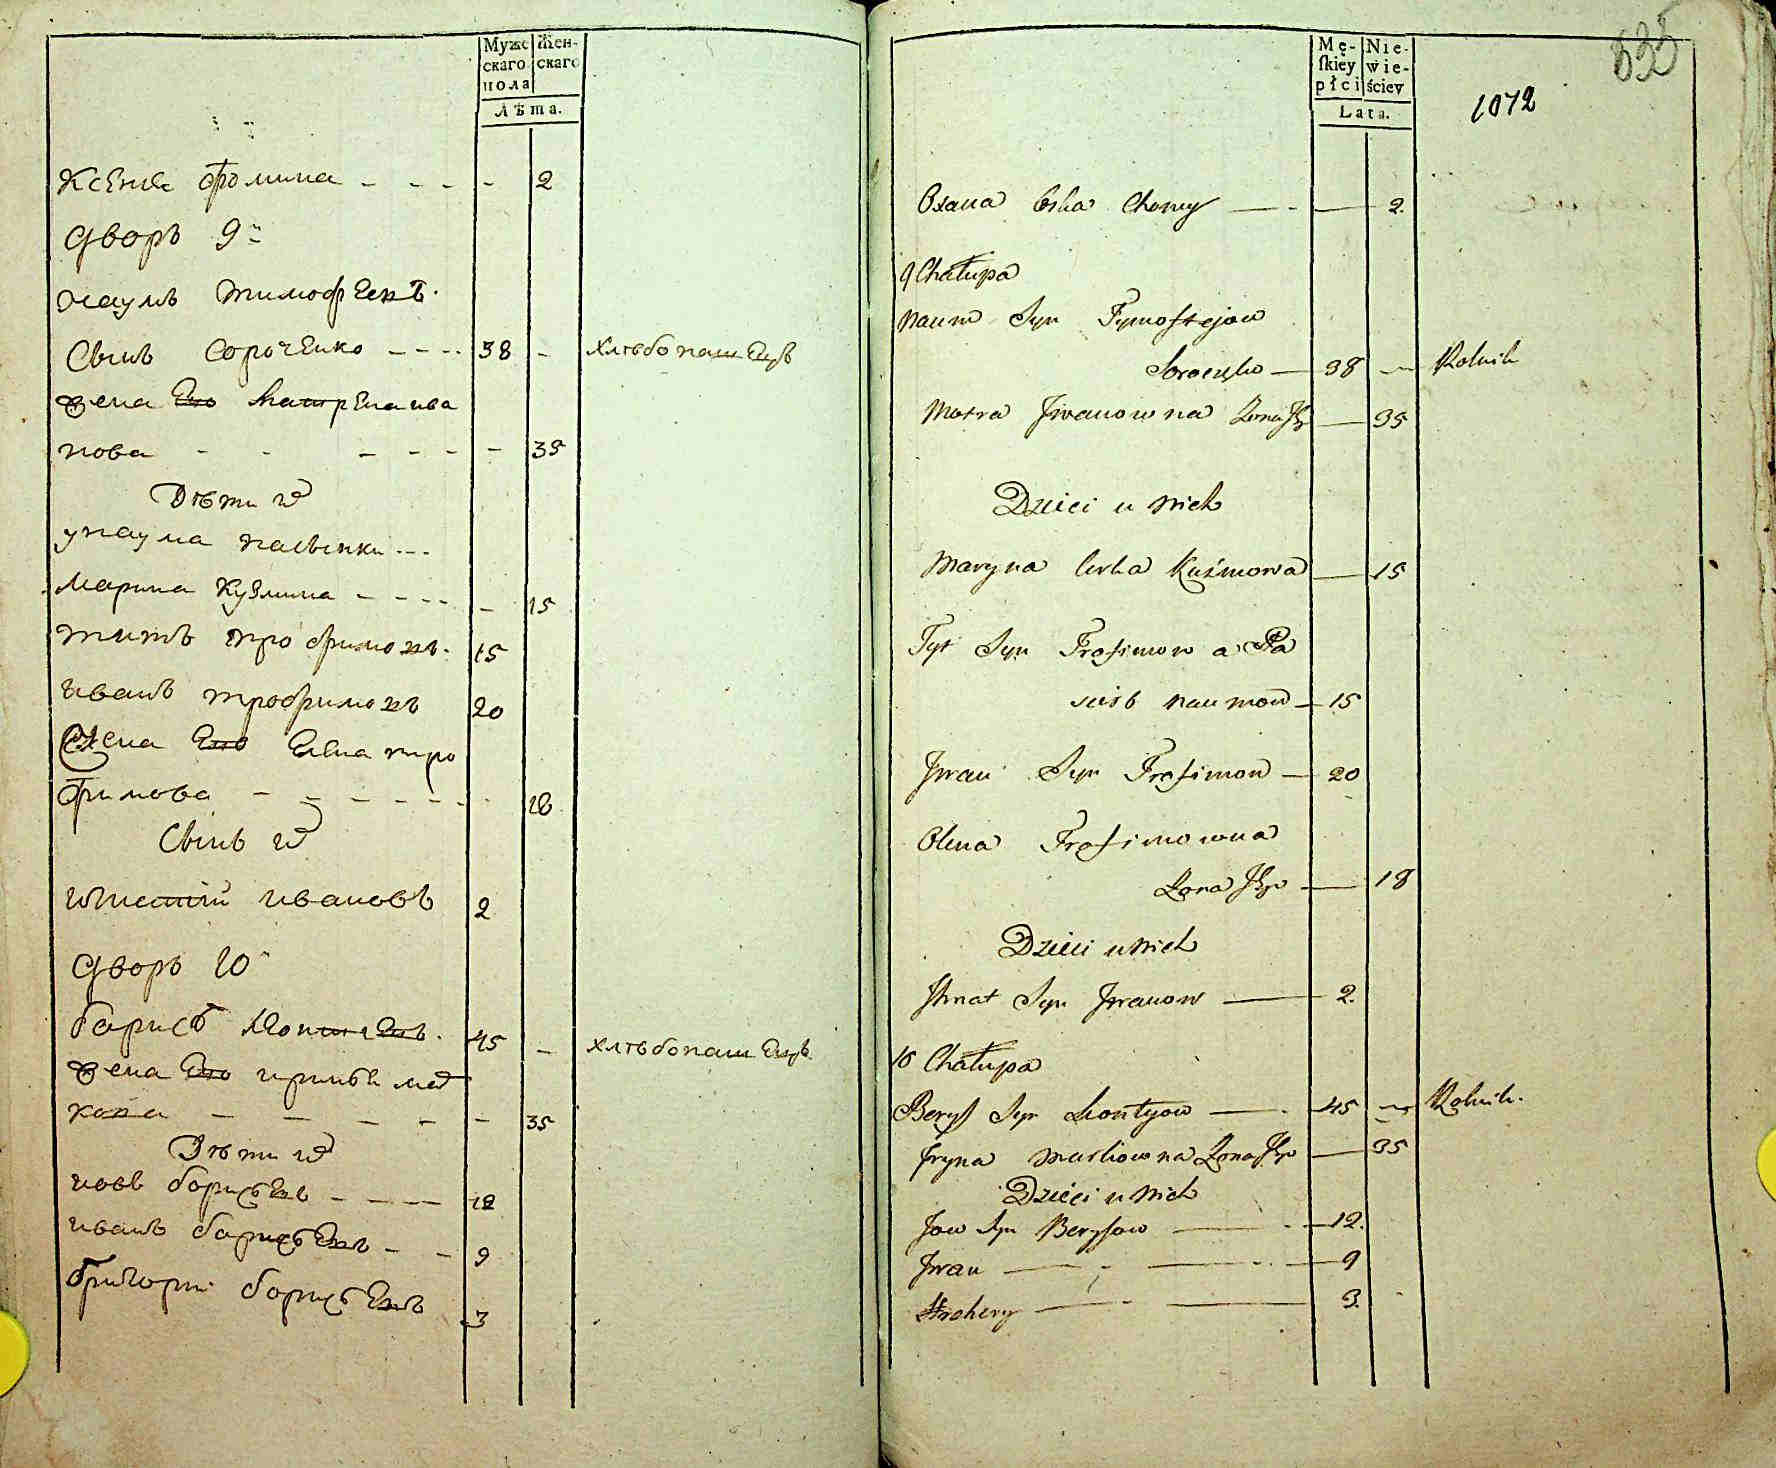 Мужескаго пола
Женскаго
Лѣта.
Ксения Фомина - - - - 2
Дворъ 9й
Наумъ Тимофеевъ
Сынъ Сороченко - - - 38 - хлѣбопашецъ
жена Его Матрена Ива
нова - - - - - - 35
Дѣти их
у Наума пасынки ---
Марина Кузмина - - - - - 15
Титъ Трофимовъ 15
Иванъ Трофимовъ 20
жена Его Елена Тро
фимова - - - - - - 18
Сынъ их
Игнатий Ивановъ 2
Дворъ 10
Барисъ Леонтиевъ 45 - хлѣбопашецъ
жена Его Ирина
кова - - - - - 35
Дѣти их
Иовъ Борисовъ - - - 12
Иванъ Борисовъ - - 9
Григорий Борисовъ 3
Męskiéy płci
Niewieściey
Lata.
1072
535
Oxana Crka Chomy — - — 2.
9 Chałupa
Naum Syn Tymofiejow
Soroczko — 38 — Rolnik
Motra Jwanowna Zona Jgo — 35
Dzieci u nich
Maryna Curka Kuźmowa — 15
Tyt Syn Trofimow a Pa
sieb Naumow — 15
Jwan Syn Trofimow — 20
Olena Trofimowna
Zona Jgo — 18
Dzieci u nich
Jhnat Syn Jwanow — 2.
10 Chałupa
Berys Syn Leontyow — 45 — Rolnik.
Jryna Markowna Zona Jgo — 35
Dzieci u nich
Jow Syn Berysow — 12.
Jwan — - — 9
Hrehery — - — 3.